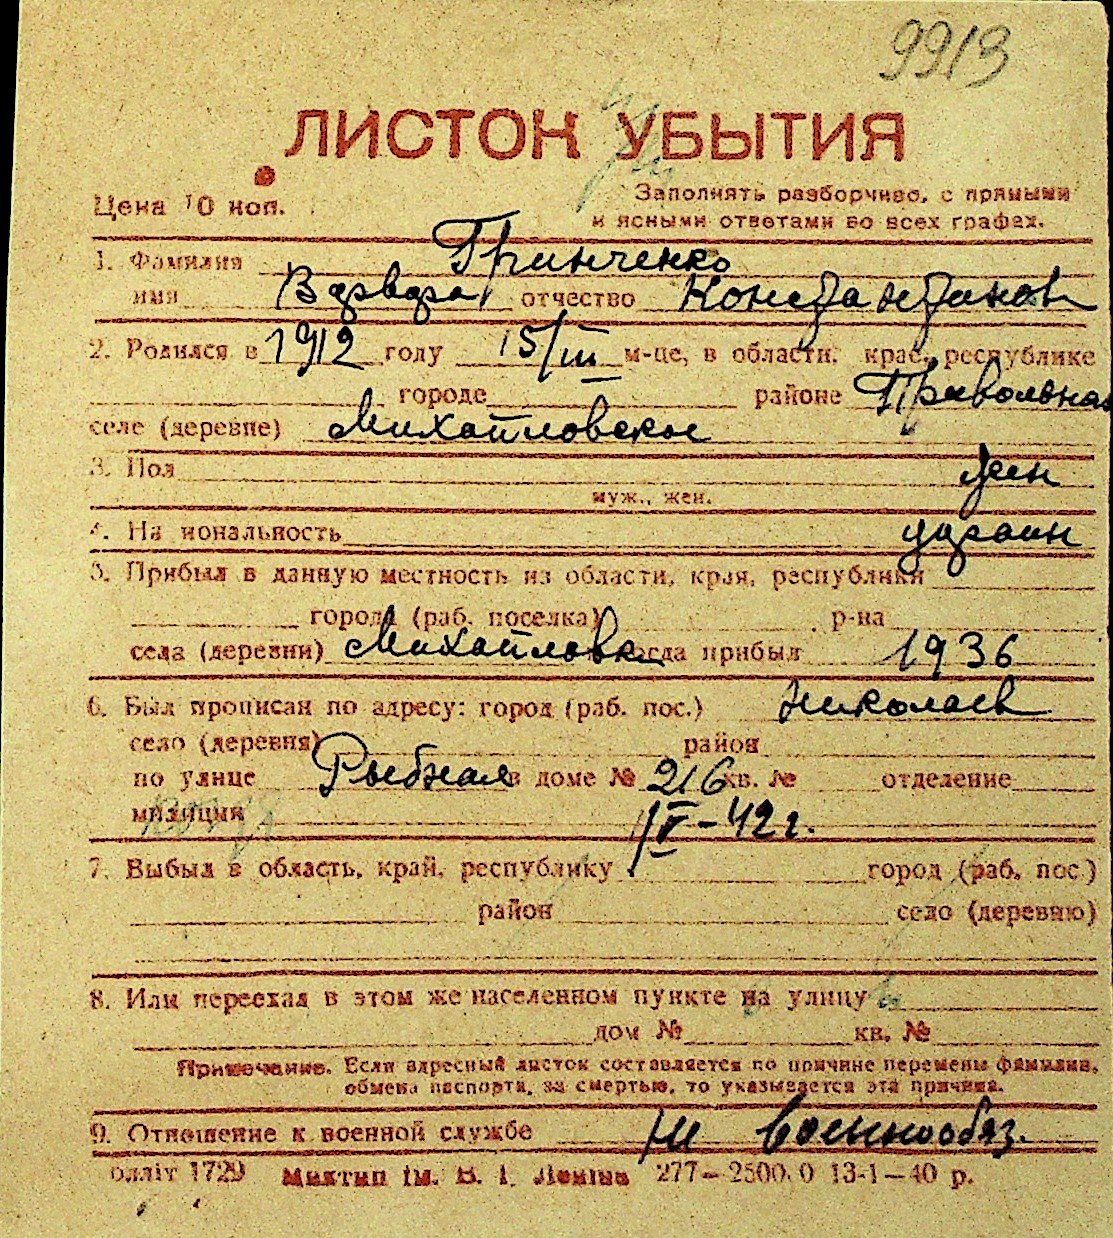 9913
ЛИСТОК УБЫТИЯ
Цена 10 коп.
Заполнять разборчиво, с прямыми
и ясными ответами во всех графах.
1. Фамилия Гринченко
имя Варвара отчество Константинов
2. Родился в 1912 году 15/III м-це, в области, крае, республике
городе районе Привольная
селе (деревне) Михайловское
3. Пол жен
муж., жен.
4. Национальность украин
5. Прибыл в данную местность из области, края, республики
города (раб. поселка) р-на
села (деревни) Михайловка когда прибыл 1936
6. Был прописан по адресу: город (раб. пос.) Николаев
село (деревня) район
по улице Рыбная в доме № 216 кв. № отделение
милиции
1/V-42 г.
7. Выбыл в область, край, республику город (раб. пос.)
район село (деревню)
8. Или переехал в этом же населенном пункте на улицу
дом № кв. №
Примечание. Если адресный листок составляется по причине перемены фамилии,
обмена паспорта, за смертью, то указывается эта причина.
9. Отношение к военной службе не военнообяз.
олліт 1729 Миктип ім. В. І. Леніна 277—2500.0 13-1—40 р.